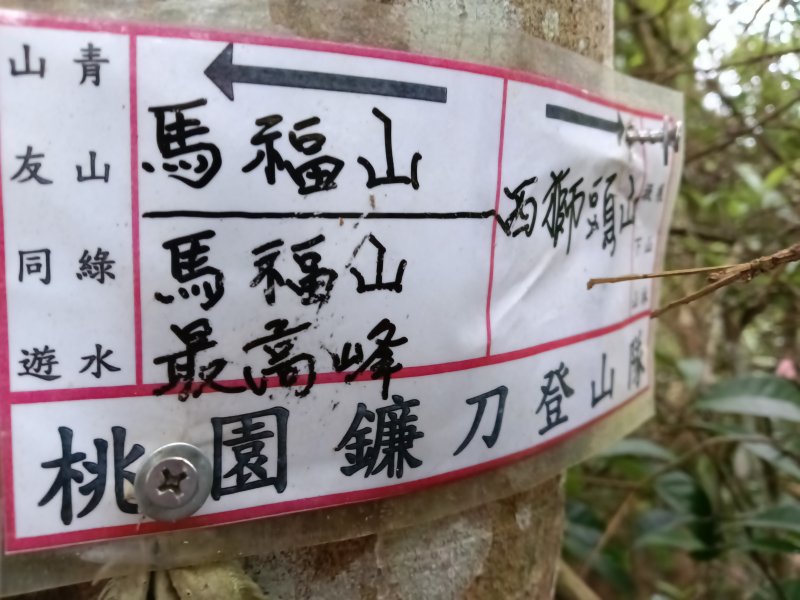 青山綠水
山友同遊
馬福山
馬福山
最高峰
西獅頭山
桃園鐮刀登山隊